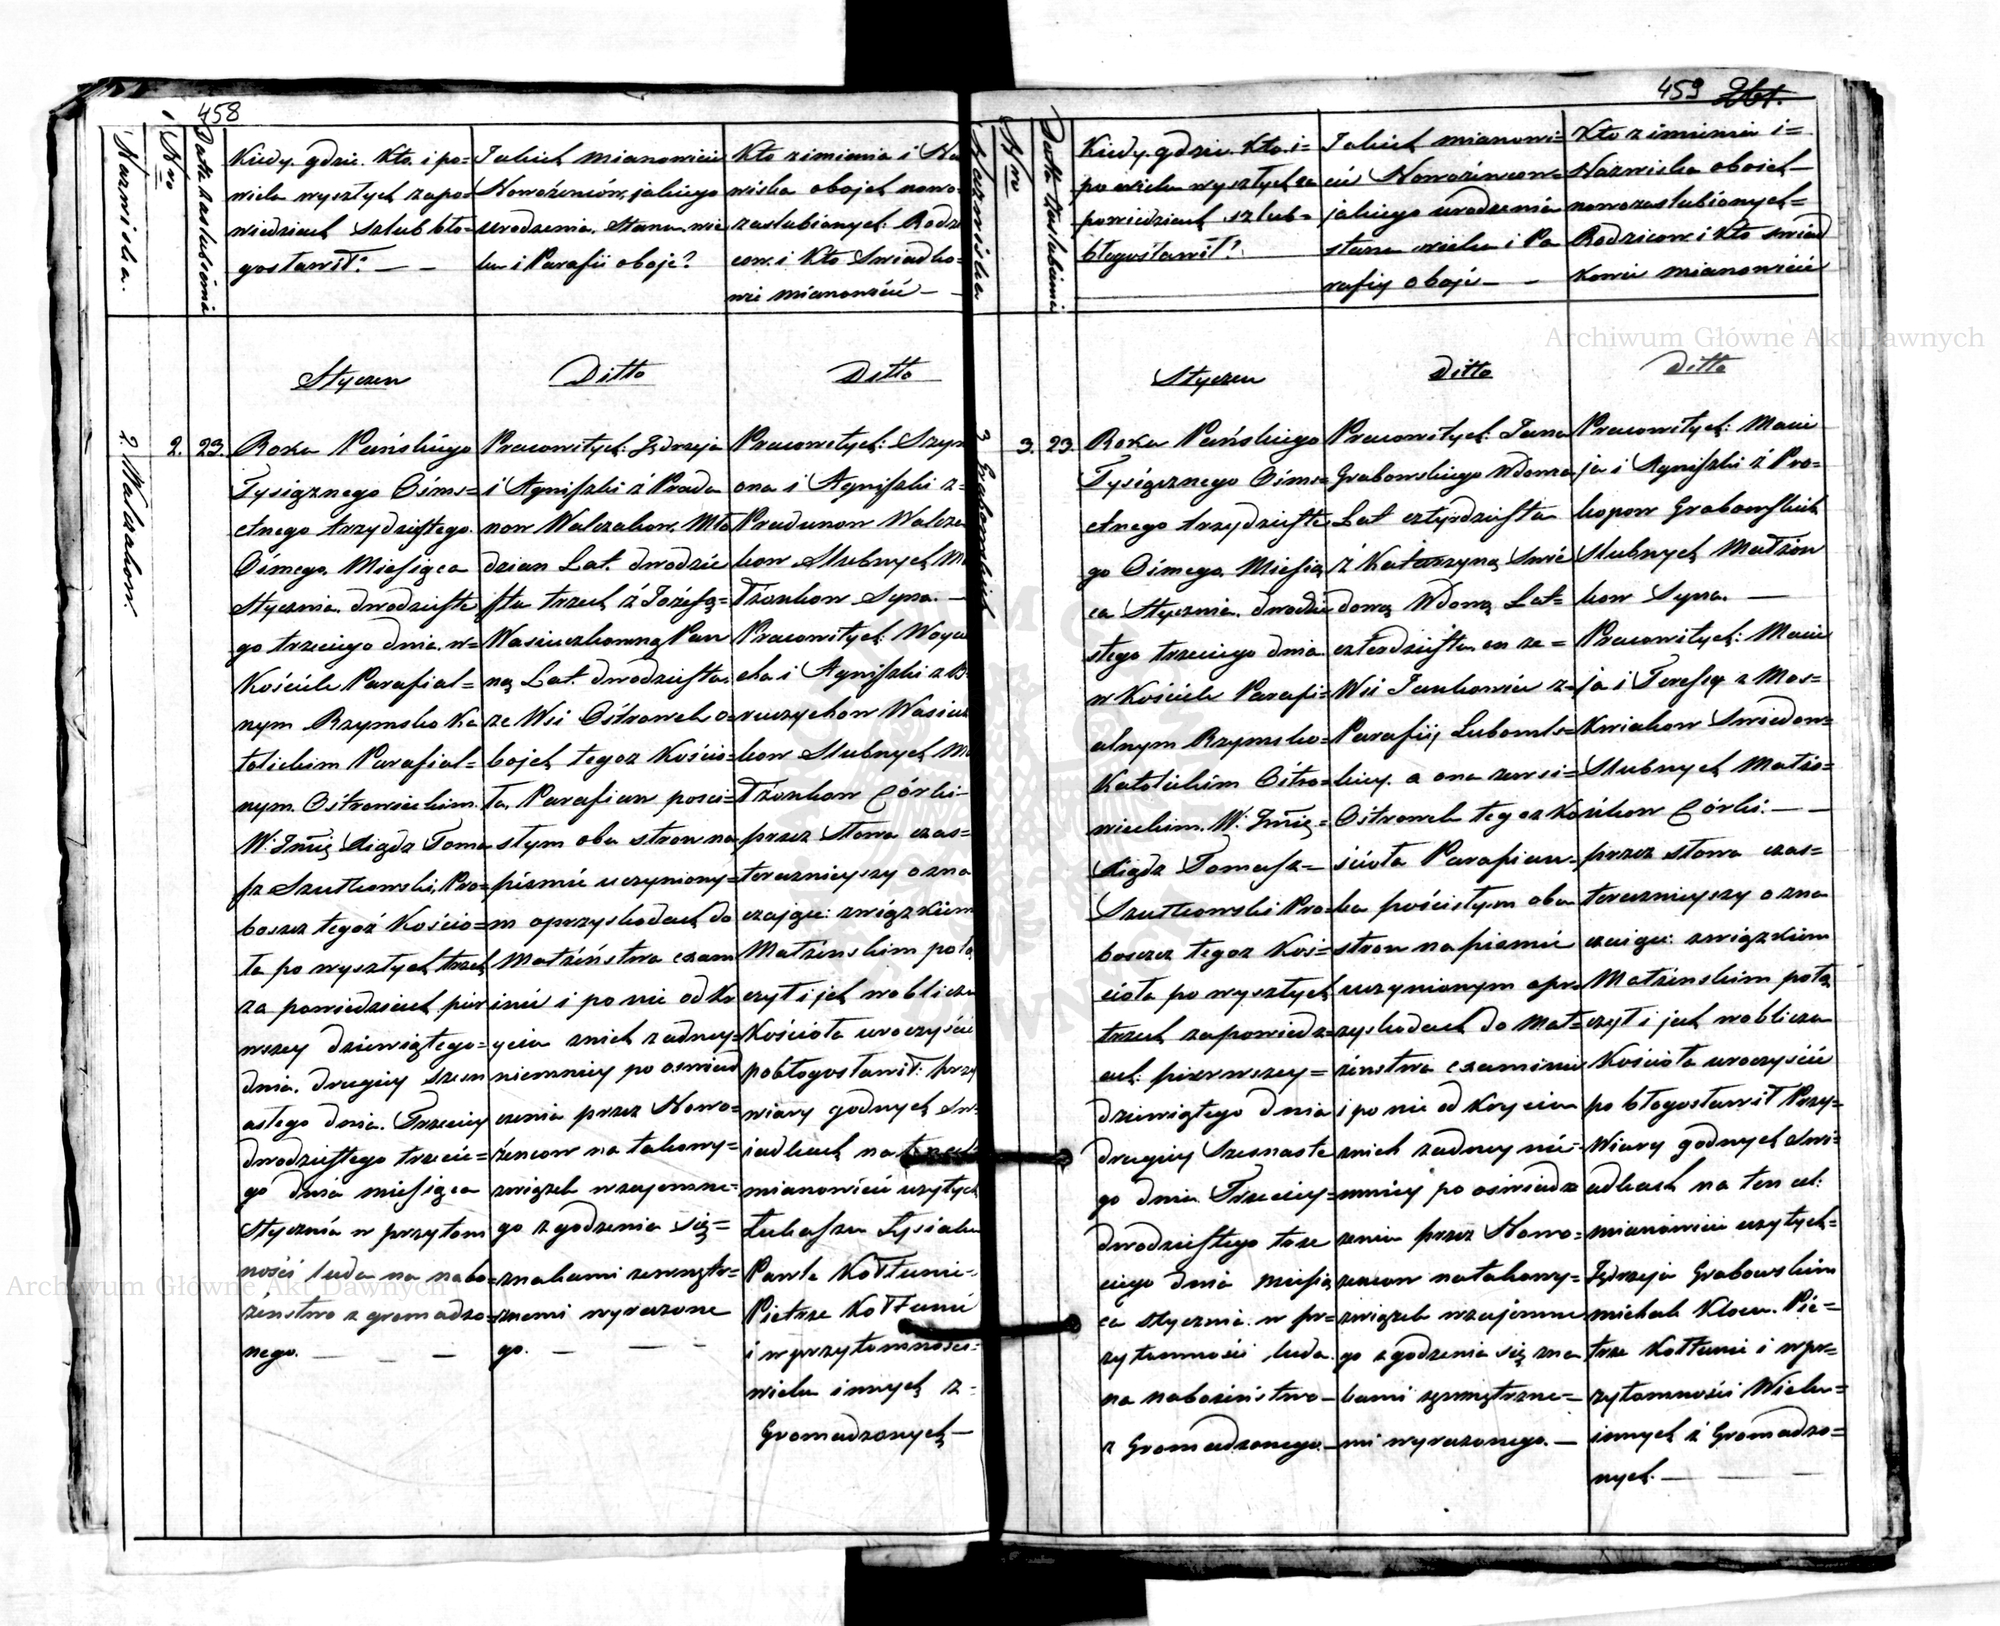 458
Nazwiska.
Nro
Data zaslubienia
Kiedy. gdzie. Kto. i po=
wielu wyszłych zapo=
wiedziach Szlub bło=
gosławił? — —
Jakich mianowicie
Nowożeńców, jakiego
urodzenia. Stanu. wie
ku i Parafii oboje?
Kto z imienia i Na
wiska obojch nowo=
zaslubionych: Rodzi
cow. i Kto Swiadko=
wie mianowicie —
Styczen
Ditto
Ditto
2. Walzakow.
2.
23.
Roku Pańskiego
Tysiącznego Ośms=
etnego trzydziestego.
Osmego. Miesiąca
Stycznia. dwudzieste
go trzeciego dnia. w=
Kościele Parafial=
nym Rzymsko Ka
tolickim Parafial=
nym. Ostrowieckim.
W: Jmię Xiądz Toma
sz Szutkowski, Pro=
boszcz tegoż Kościo=
ła po wyszłych trzech
za powiedziach pier
wszey dziewiątego=
dnia. drugiey szesn
astego dnia. Trzeciey
dwudziestego trzecie=
go dnia miesiąca
Stycznia w przytom
ności ludu na nabo=
zenstwo z gromadzo=
nego. — — —
Pracowitych: Jędrzeja
i Agniszki z Pradu
now Walzakow. Mło
dzian Lat. dwadzie
sta trzech z Józefą=
Wasiuczkowną Pan
ną Lat. dwadziesta.
ze Wsi Ostrowek o=
bojch tegoz Kościo=
ła, Parafian posci=
stym obu stron na
piśmie uczyniony=
m oprzyskodach do
Matżéństwa exam
inie i po nie odkr
yciu znich zadney=
niemniey po oswiad
czenia przez Nowo=
żencow na takowy=
związek wzajemne=
go zgodzenia się=
znakami zewnętr=
znemi wyrazone
go. — — —
Pracowitych: Szym
ona i Agniszki z=
Pradunow Walza
kow Slubnych M
Tżonkow Syna. —
Pracowitych: Woyci
cha i Agniszki z
ruczychow Wasiucz
kow Slubnych M
Tżonkow Córki
przez Słowa czas=
teraznieyszy ozna
czające: związkiem
Matżenskim połą
czył i jch wobliczu
Kościoła uroczyście
pobłogosławił: przy
wiary godnych Sw=
iadkach na ten cel:
mianowicie uzytych
Łukaszu Łysiaku
Pawle Kołtunie
Pietrze Kołtunie
i wprzytomności=
wielu innych z=
Gromadzonych —
459 261.
Nazwiska
Nro
Data zaslubienia
Kiedy. gdzie. Kto. i=
po wielu wyszłych za
powiedziach szlub=
błogosławił?
Jakich mianowi=
cie Nowożeńcow=
jakiego urodzenia
stanu wieku i Pa
rafiy oboje — —
Kto z imienia i=
Nazwiska obojch —
nowozaslubionych=
Rodzicow i Kto swiad
kowie mianowicie
Styczen
Ditto
Ditto
3 Grabowskich
3.
23.
Roku Pańskiego
Tysiącznego Ośms=
etnego trzydzieste
go Osmego. Miesią
ca Stycznia. dwudzie
stego trzeciego dnia
w Kościele Parafi=
alnym Rzymsko=
Katolickim Ostro=
wieckim. W: Jmię=
Xiądz Tomasz=
Szutkowski Pro=
boszcz tegoz Koś=
cioła po wyszłych
trzech zapowiedz=
iach: pierwszey=
dziewiątego dnia
drugiey Szesnaste
go dnia. Trzeciey=
dwudziestego trze
ciego dnia miesią
ca stycznia: w pr=
zytomności ludu.
na nabozeństwo —
z Gromadzonego. —
Pracowitych: Jana
Grabowskiego Wdowca
Lat czterdziesta
z Katarzyną Swie
doną Wdową Lat=
czterdziesta. on ze=
Wsi Jankowiec z=
Parafiy Lubomls=
kiey. a ona ze wsi=
Ostrowek tegoz Ko
ścioła Parafian=
ka pościstym obu
stron na pismie
uczynionym opr=
zyskodach do Mał=
żenstwa examinie
i po nie odkryciu
znich zadney nie=
mniey po oświadc
zenia przez Nowo=
zencow natakowy=
związek wzajemne
go zgodzenia się zna
kami zewnętrzne=
mi wyrazonego. —
Pracowitych: Maci
ja i Agniszki z Pro=
kopow Grabowskich
Slubnych Matżon
kow Syna. —
Pracowitych: Maci
ja i Teresy z Mos=
Kwiakow Swiedon=
Slubnych Matżo=
nkow Córki: — —
przez słowa czas=
teraznieyszy ozna
czaiące: związkiem
Matżenskim połą
czył i jch wobliczu
Kościoła uroczyście
po błogosławił Przy=
Wiary godnych Swi=
adkach na ten cel:
mianowicie uzytych=
Jędrzeja Grabowskim
michale Klocu. Pie=
trze Kołtunie i wpr=
zytomności Wielu=
innych z Gromadzo=
nych. — — —
Archiwum Główne Akt Dawnych
Archiwum Główne Akt Dawnych